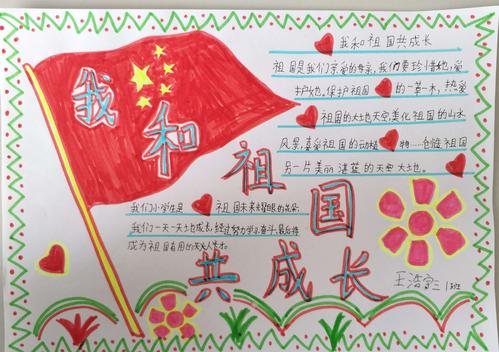 我和祖国共成长
我和祖国共成长
祖国是我们亲爱的母亲，我们要珍惜她，爱
护她。保护祖国的一草一木，热爱
祖国的大地天空，美化祖国的山水
风景，喜爱祖国的动植物……创造祖国
另一片美丽湛蓝的天空大地。
我们小学生是祖国未来耀眼的花朵
我们一天一天地成长，经过努力学习奋斗，最后将
成为祖国有用的
王浩宇 二1班